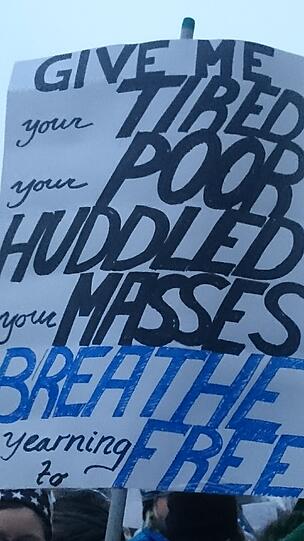 GIVE ME
your TIRED
your POOR
HUDDLED
your MASSES
BREATHE
yearning to FREE